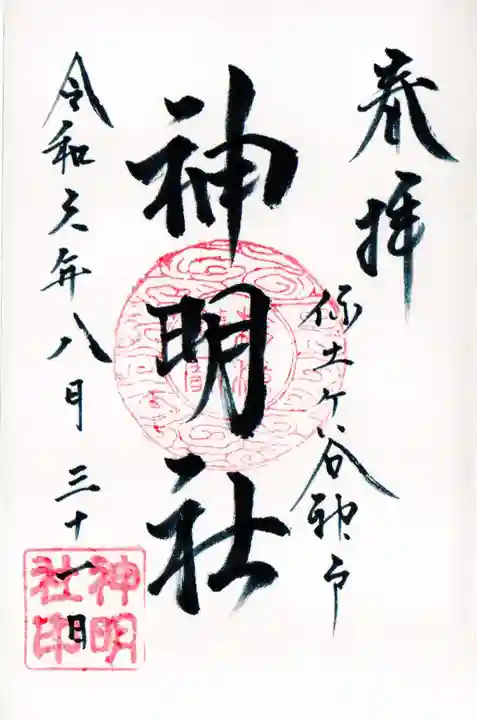 奉拝
保土ヶ谷神戸
神明社
令和六年八月三十一日
神明社印